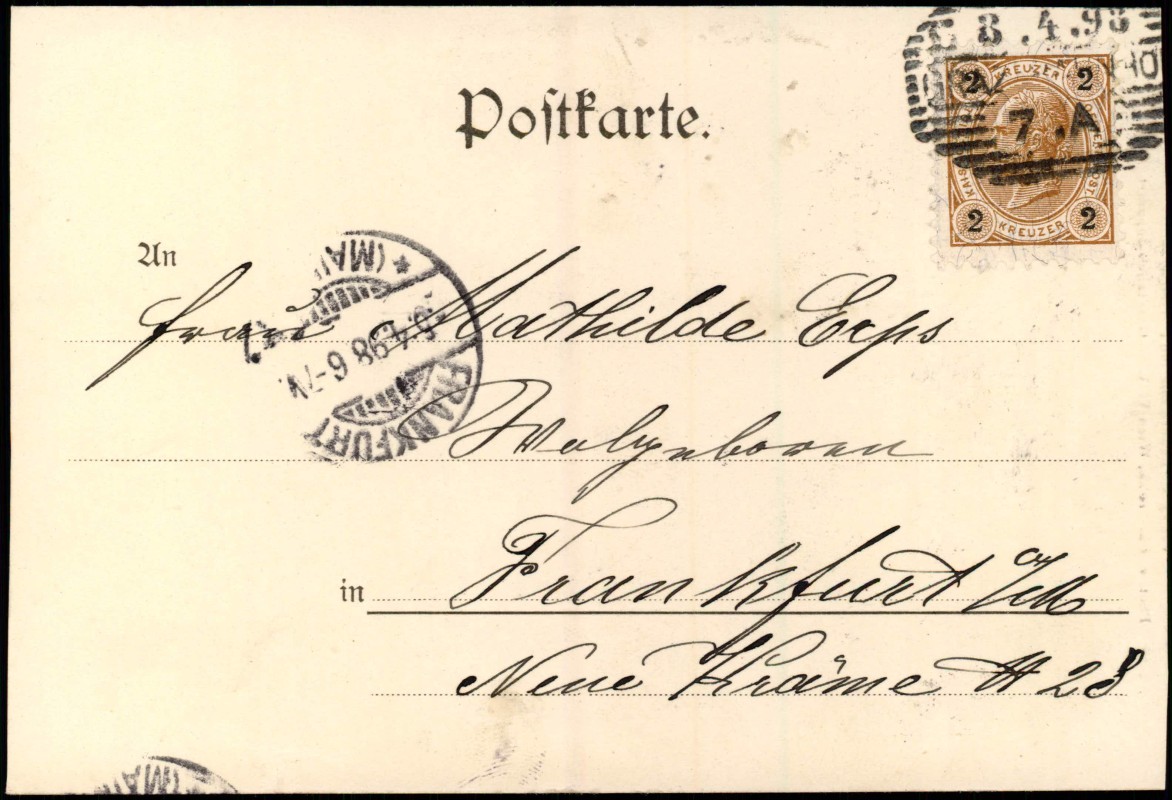 Postkarte.
8.4.98
7.A
2 KREUZER 2
2 KREUZER 2
An
Frau Mathilde Erps
Wolgeboren
in Frankfurt a/M
Neue Kräme # 23
FRANKFURT (MAIN) *
4.98 6-7V.
(MAIN